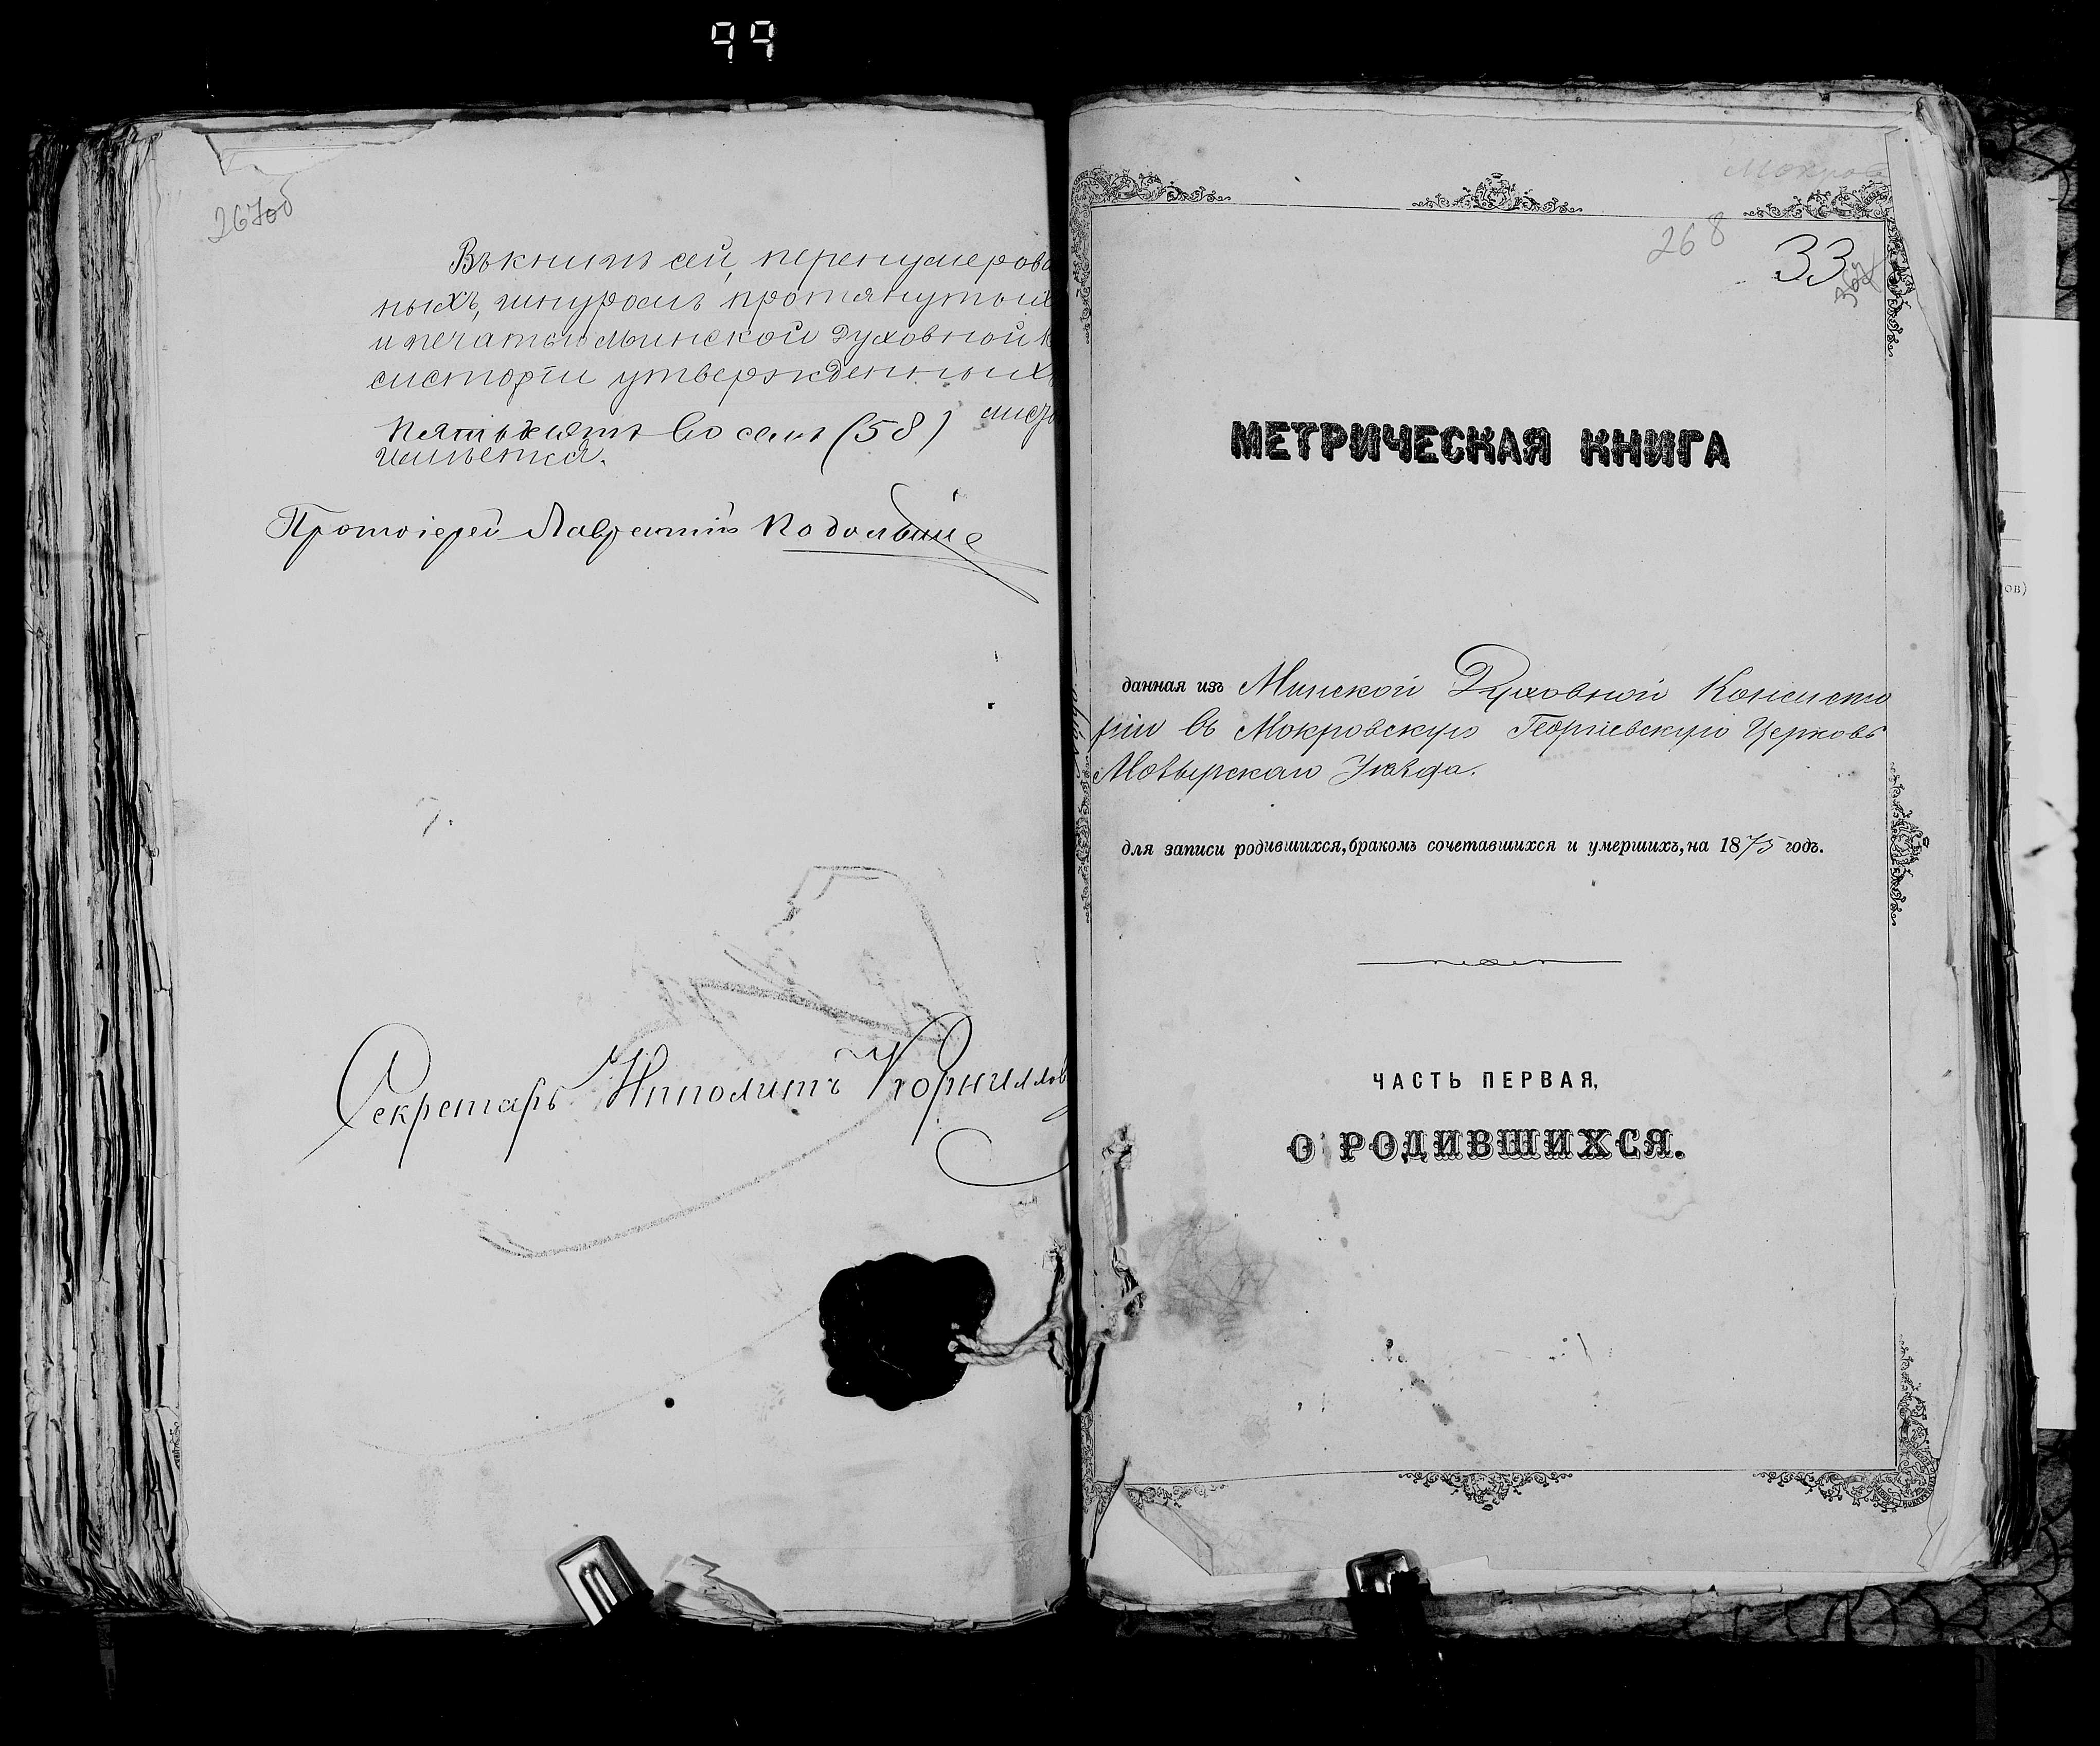 99
267об
Въ книгѣ сей, перенумерова
ныхъ, шнуромъ протянутых
и печатью Минской Духовной К
систоріи утвержденныхъ
листо
Пятьдесятъ восемь (58)
Протоіерей Лаврентій
Секретарь Ипполитъ Корнилов
Мокров
268
33
МЕТРИЧЕСКАЯ КНИГА
данная изъ Минской Духовной Консисто
ріи въ Мокровскую Георгіевскую Церковь
Мозырскаго Уѣзда.
для записи родившихся, бракомъ сочетавшихся и умершихъ, на 1875 годъ.
ЧАСТЬ ПЕРВАЯ,
О РОДИВШИХСЯ.
ов)